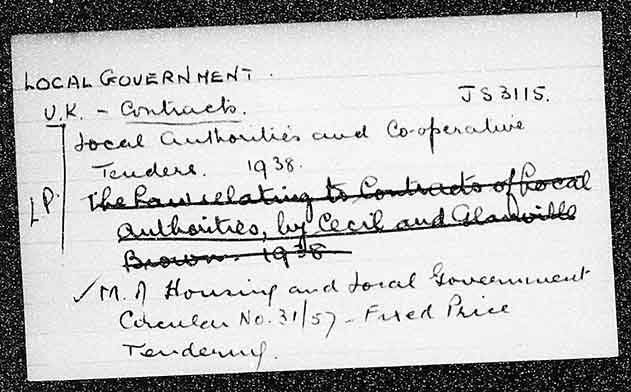 LOCAL GOVERNMENT.
U.K. - Contracts.
JS3115.
Local Authorities and Co-operative
Tenders. 1938.
LP.
The Law relating to Contracts of Local
Authorities, by Cecil and Glanville
Brown. 1938
✓ M. of Housing and Local Government
Circular No. 31/57 - Fixed Price
Tendering.